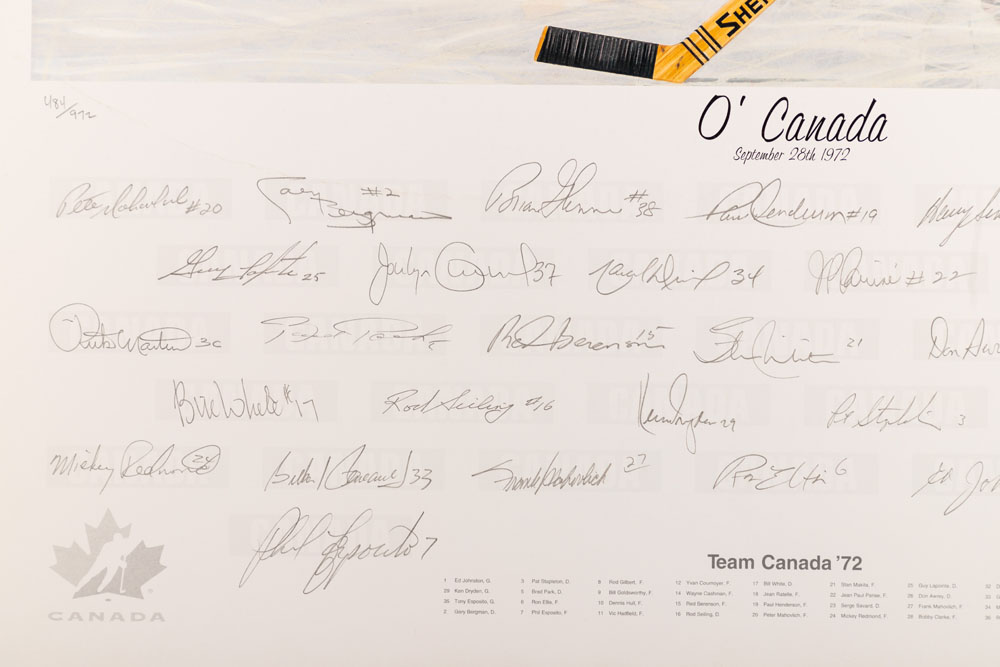 SHER
484/972
O' Canada
September 28th 1972
Pete Mahovlich #20
Gary Bergman #2
Brian Glennie #38
Paul Henderson #19
Guy Lapointe 25
Jocelyn Guevremont 37
34
JP Parisé #22
Rick Martin 36
Red Berenson 15
Stan Mikita 21
Don Aw
Bill White #17
Rod Seiling #16
Ken Dryden 29
Pat Stapleton 3
Mickey Redmond 24
Gilbert Perreault 33
Frank Mahovlich 27
Ron Ellis 6
Ed Jo
Phil Esposito 7
Team Canada '72
1 Ed Johnston, G. 3 Pat Stapleton, D. 8 Rod Gilbert, F. 12 Yvan Cournoyer, F. 17 Bill White, D. 21 Stan Mikita, F. 25 Guy Lapointe, D. 32
29 Ken Dryden, G. 5 Brad Park, D. 9 Bill Goldsworthy, F. 14 Wayne Cashman, F. 18 Jean Ratelle, F. 22 Jean Paul Parise, F. 26 Don Awrey, D. 33
35 Tony Esposito, G. 6 Ron Ellis, F. 10 Dennis Hull, F. 15 Red Berenson, F. 19 Paul Henderson, F. 23 Serge Savard, D. 27 Frank Mahovlich, F. 34
2 Gary Bergman, D. 7 Phil Esposito, F. 11 Vic Hadfield, F. 16 Rod Seiling, D. 20 Pete Mahovlich, F. 24 Mickey Redmond, F. 28 Bobby Clarke, F.
CANADA